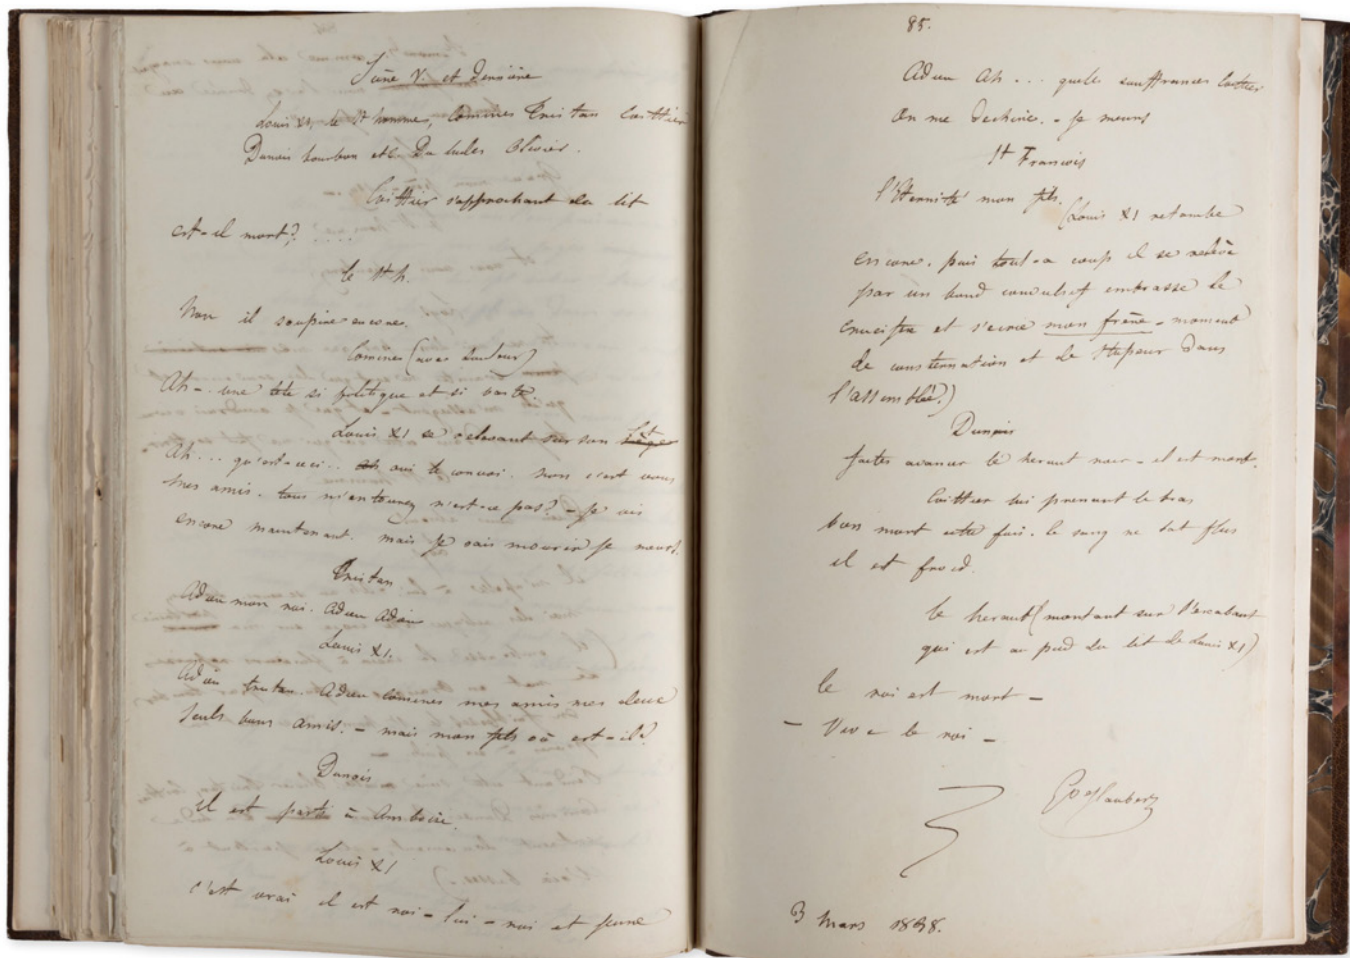 Scène V. et Dernière
Louis XI, le St hommes, Comines Tristan Coittier
Dunois bourbon etc. Du Ludes Olivier.
Coittier s'approchant du lit
est-il mort? ....
le St h.
Non il soupire encore.
Comines (avec douleur)
Ah - . une tete si politique et si vaste.
Louis XI se relevant sur son lit
Ah ... qu'est-ceci .. oui te convoi. non c'est vous
mes amis. tous m'entourez n'est-ce pas? - Je vis
encore maintenant. mais Je vais mourir Je meurs.
Tristan
Adieu mon roi. Adieu Adieu
Louis XI.
Adieu tristan. Adieu Comines mes amis mes deux
seuls bons amis. - mais mon fils où est-il?
Dunois
il est parti à Amboise.
Louis XI
c'est vrai il est roi - lui - roi et jeune
85.
Adieu Ah ... quelles souffrances Coittier
On me dechire. - Je meurs
St Francois
l'Eternité mon fils.
(Louis XI retombe
encore. puis tout-a coup il se relève
par un bond convulsif embrasse le
crucifix et s'ecrie mon frère - moment
de consternation et de stupeur dans
l'assemblée.)
Dunois
faites avancer le heraut noir - il est mort.
Coittier lui prenant le bras
bien mort cette fois. le sang ne bat plus
il est froid.
le heraut (montant sur l'escabeau
qui est au pied du lit de Louis XI)
le roi est mort -
- Vive le roi -
Gve Flaubert
3 mars 1838.